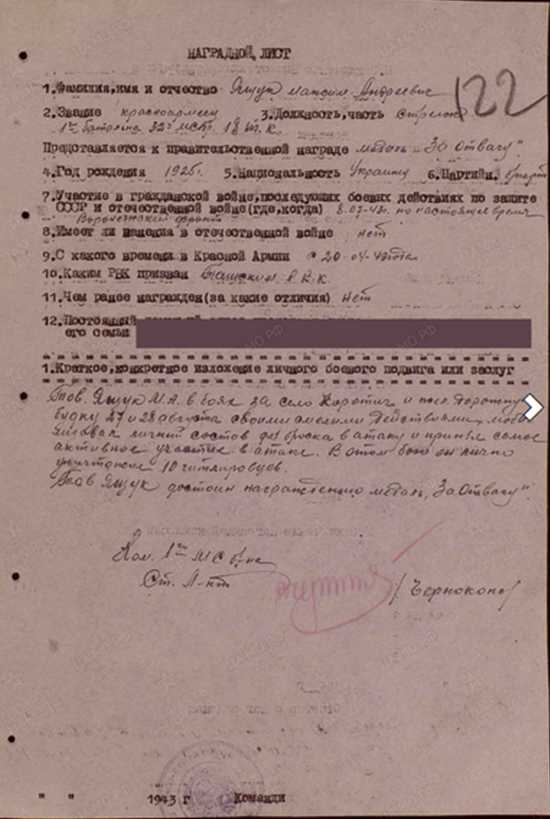 122
НАГРАДНОЙ ЛИСТ
1.Фамилия,имя и отчество Ящук Максим Андреевич
2.Звание красноармеец 3.Должность,часть стрелок
1го батальона 32 МСБр. 18 Т.К.
Представляется к правительственной награде медаль "За Отвагу"
4.Год рождения 1925г. 5.Национальность Украинц 6.Партийн.
7.Участие в гражданской войне,последующих боевых действиях по защите
СССР и отечественной войне(где,когда) 8.07.43г. по настоящее время
Воронежский фронт
8.Имеет ли ранения в отечественной войне нет
9.С какого времени в Красной Армии с 20-04-43 года
10.Каким РВК призван Р.В.К.
11.Чем ранее награжден(за какие отличия) Нет
12.Постоянный
его семьи
1.Краткое,конкретное изложение личного боевого подвига или заслуг
Тов. Ящук М.А. в боях за село Коротич и пос.
будку 27 и 28 августа своими смелыми действиями
личный состав для броска в атаку и принял самое
активное участие в атаке. В этом бою он лично
уничтожил 10 гитлеровцев.
Тов Ящук достоин награждению медаль "За Отвагу".
Ком. 1го МС б-на
Ст. Л-нт /Черноконь/
" " 1943 г Команди